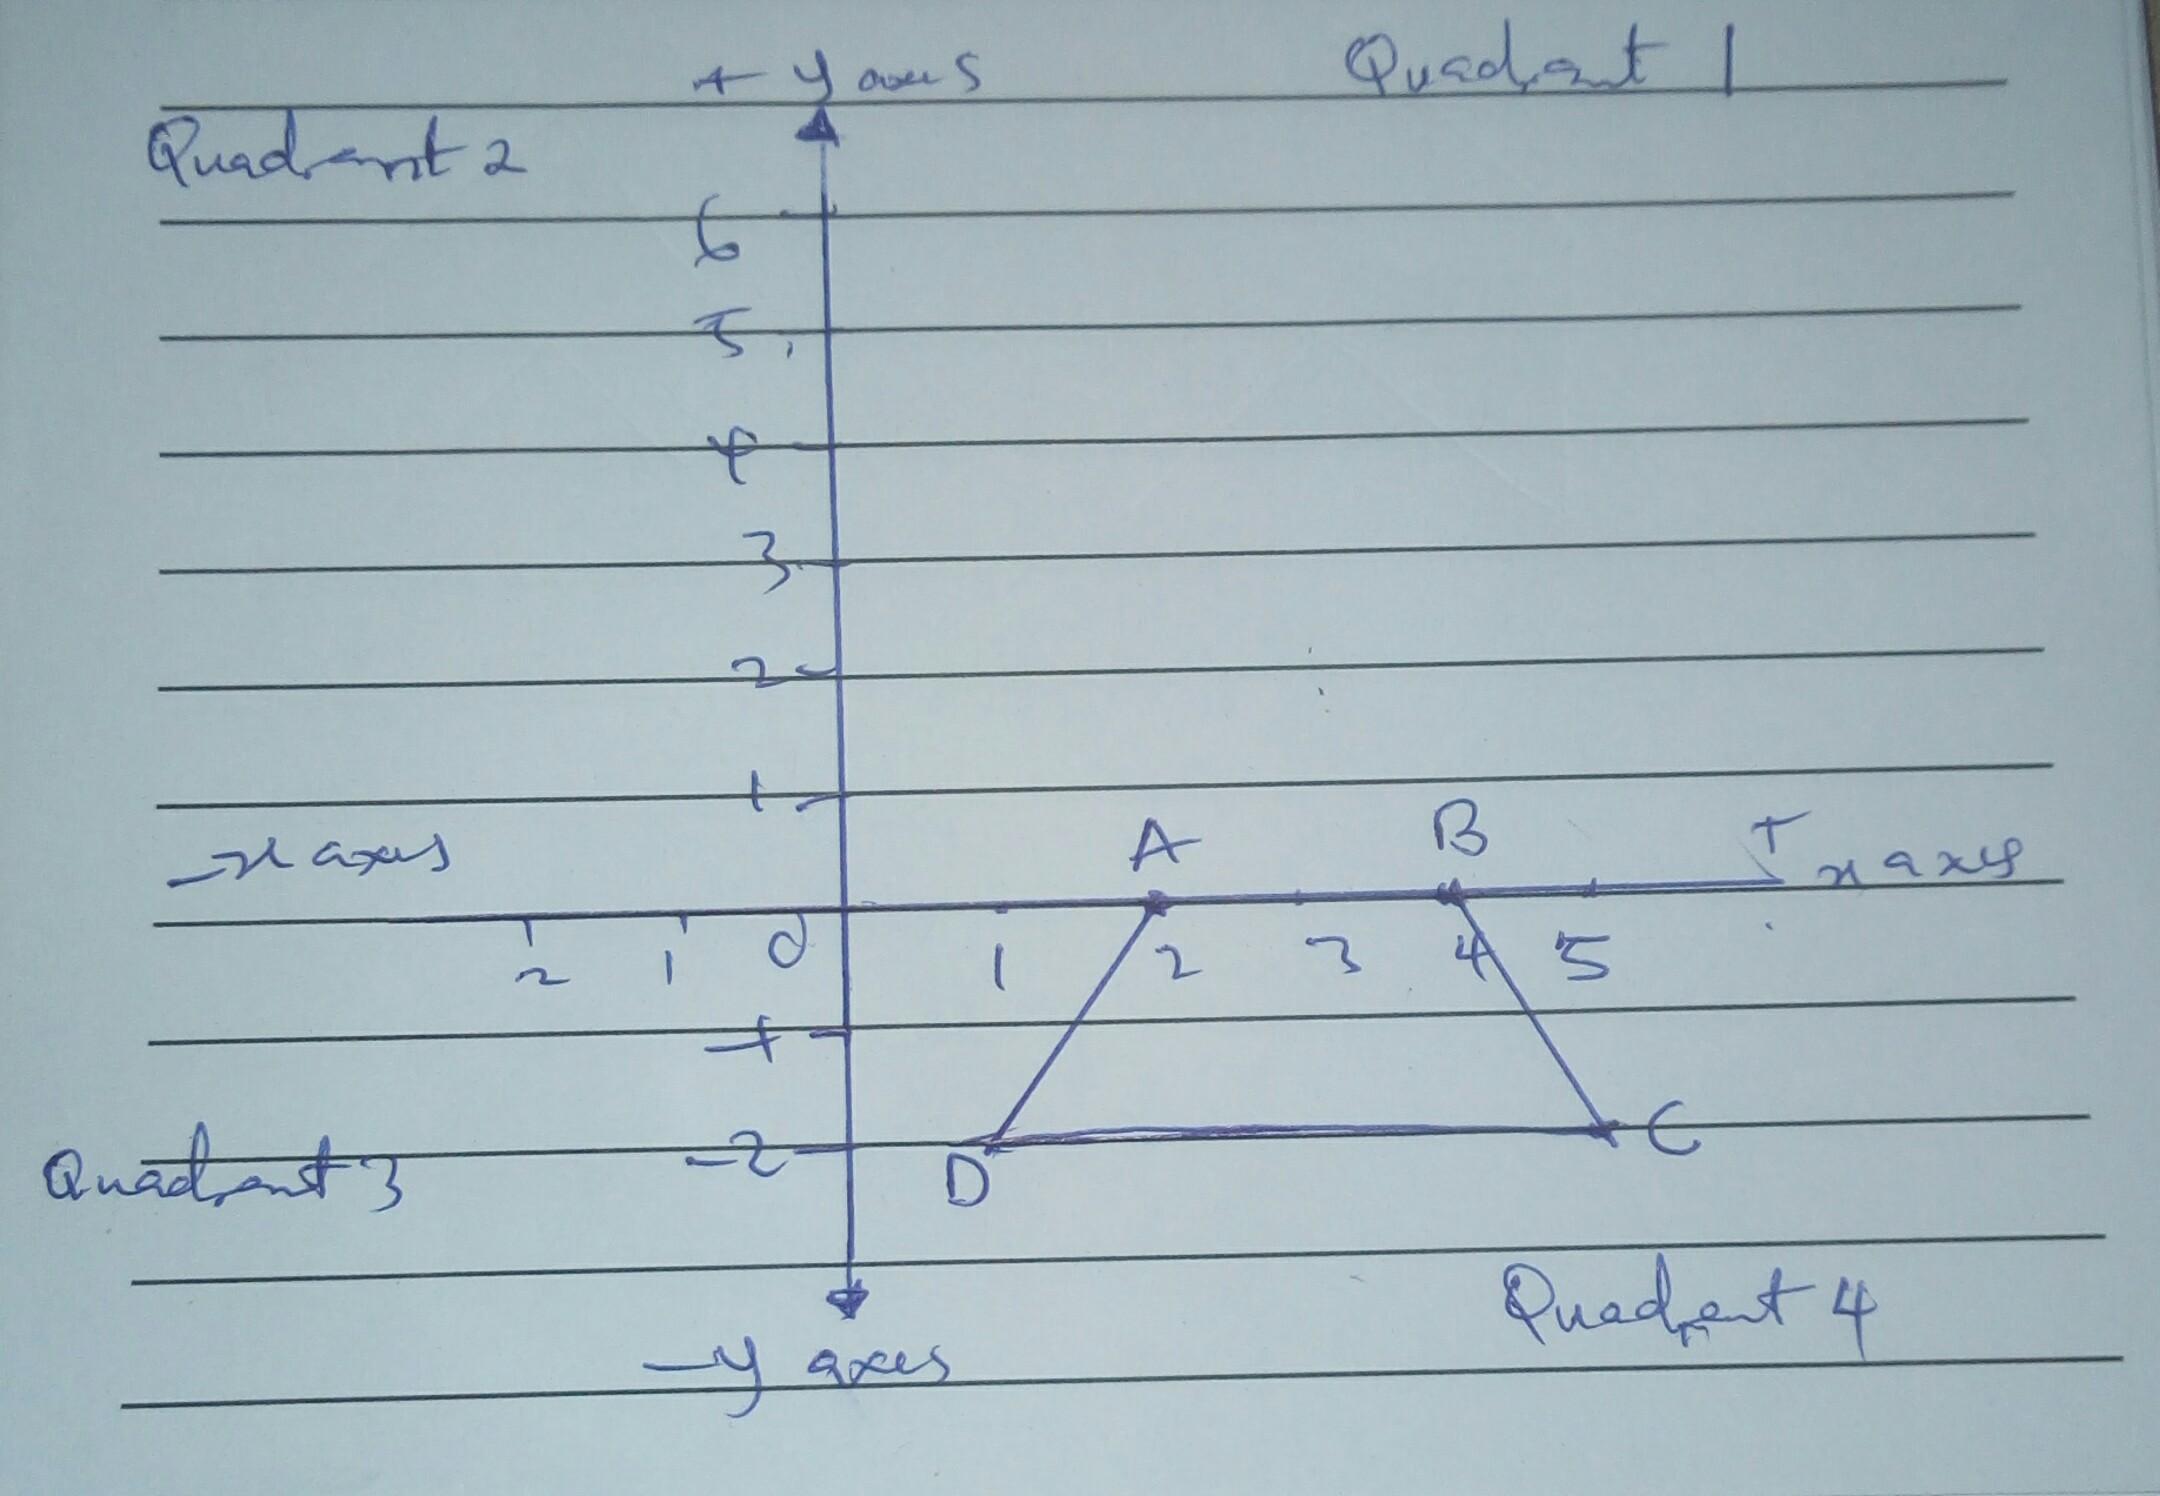 + y axes Quadrant 1
Quadrant 2
6
5
4
3
2
1
A B
-x axes + x axes
2 1 0 1 2 3 4 5
-1
-2 D C
Quadrant 3
Quadrant 4
-y axes